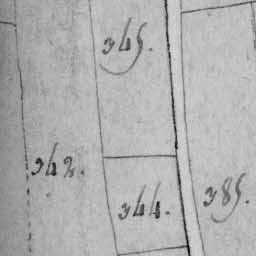 345.
342.
344.
385.